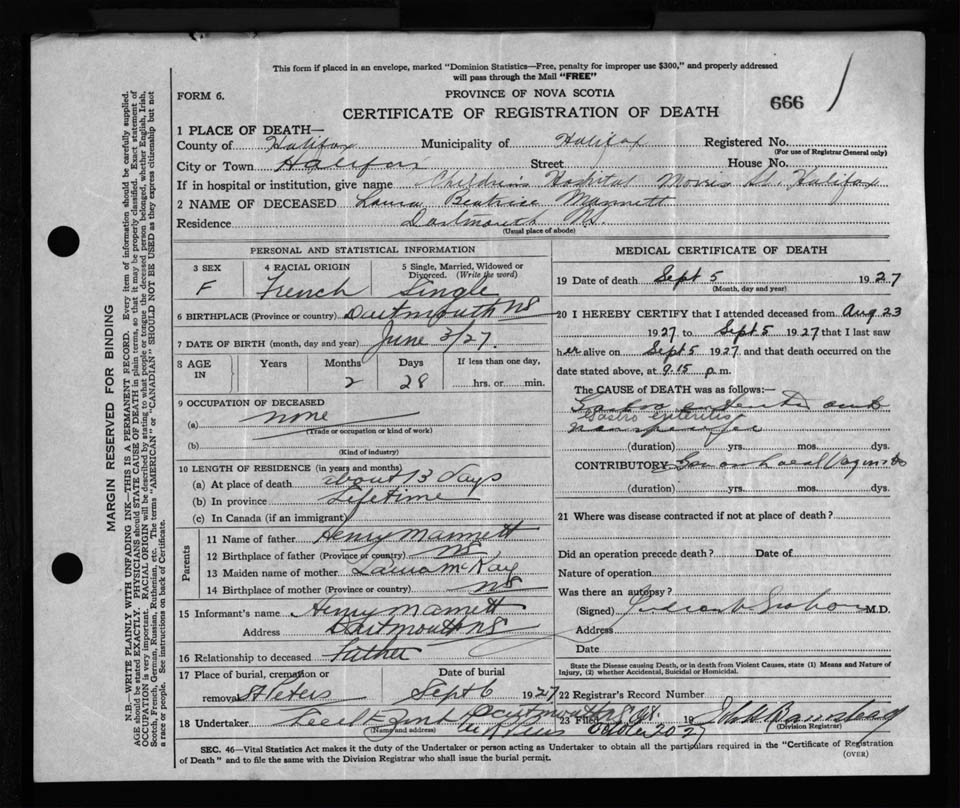 This form if placed in an envelope, marked "Dominion Statistics—Free, penalty for improper use $300," and properly addressed
will pass through the Mail "FREE"
FORM 6.
PROVINCE OF NOVA SCOTIA
666
CERTIFICATE OF REGISTRATION OF DEATH
1 PLACE OF DEATH—
County of Halifax Municipality of Halifax Registered No.
(For use of Registrar General only)
City or Town Halifax Street House No.
If in hospital or institution, give name Children's Hospital Morris St. Halifax
2 NAME OF DECEASED Laura Beatrice Mannett
Residence Dartmouth N.S.
(Usual place of abode)
PERSONAL AND STATISTICAL INFORMATION
3 SEX
F
4 RACIAL ORIGIN
French
5 Single, Married, Widowed or
Divorced. (Write the word)
Single
6 BIRTHPLACE (Province or country) Dartmouth NS
7 DATE OF BIRTH (month, day and year) June 3/27.
8 AGE
IN
Years
Months
2
Days
28
If less than one day,
hrs. or min.
9 OCCUPATION OF DECEASED
(a) none
(Trade or occupation or kind of work)
(b)
(Kind of industry)
10 LENGTH OF RESIDENCE (in years and months)
(a) At place of death about 13 days
(b) In province Lifetime
(c) In Canada (if an immigrant)
Parents
11 Name of father Henry Mannett
12 Birthplace of father (Province or country) NS
13 Maiden name of mother Laura McKay
14 Birthplace of mother (Province or country) NS
15 Informant's name Henry Mannett
Address Dartmouth NS
16 Relationship to deceased Father
17 Place of burial, cremation or
removal St Peters
Date of burial
Sept 6 1927
18 Undertaker Dartmouth
(Name and address)
MEDICAL CERTIFICATE OF DEATH
19 Date of death Sept 5 1927
(Month, day and year)
20 I HEREBY CERTIFY that I attended deceased from Aug 23
1927 to Sept 5 1927 that I last saw
her alive on Sept 5 1927 and that death occurred on the
date stated above, at 9.15 p.m.
The CAUSE of DEATH was as follows:—
Gastro enteritis
(duration) yrs. mos. dys.
CONTRIBUTORY
(duration) yrs. mos. dys.
21 Where was disease contracted if not at place of death?
Did an operation precede death? Date of
Nature of operation
Was there an autopsy?
(Signed) M.D.
Address
Date
State the Disease causing Death, or in death from Violent Causes, state (1) Means and Nature of
Injury, (2) whether Accidental, Suicidal or Homicidal.
22 Registrar's Record Number
23 Filed 19
(Division Registrar)
SEC. 46—Vital Statistics Act makes it the duty of the Undertaker or person acting as Undertaker to obtain all the particulars required in the "Certificate of Registration
of Death" and to file the same with the Division Registrar who shall issue the burial permit.
(OVER)
MARGIN RESERVED FOR BINDING
N.B.—WRITE PLAINLY WITH UNFADING INK—THIS IS A PERMANENT RECORD. Every item of information should be carefully supplied.
AGE should be stated EXACTLY. PHYSICIANS should STATE CAUSE OF DEATH in plain terms, so that it may be properly classified. Exact statement of
OCCUPATION is very important. RACIAL ORIGIN will be described by stating to what people or tongue the deceased person belonged, whether English, Irish,
Scotch, French, German, Russian, Ruthenian, etc. The terms "AMERICAN" or "CANADIAN" SHOULD NOT BE USED as they express citizenship but not
a race or people. See instructions on back of Certificate.